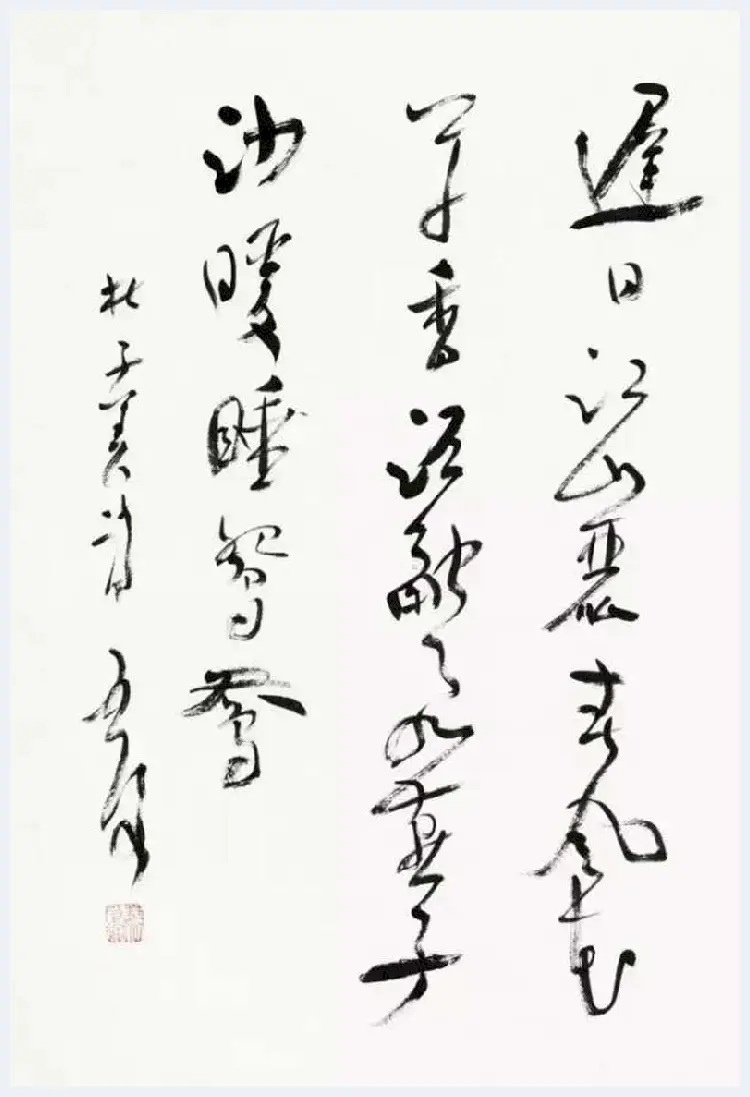 遲日江山麗春風花
草香泥融飛燕子
沙暖睡鴛鴦
杜子美詩